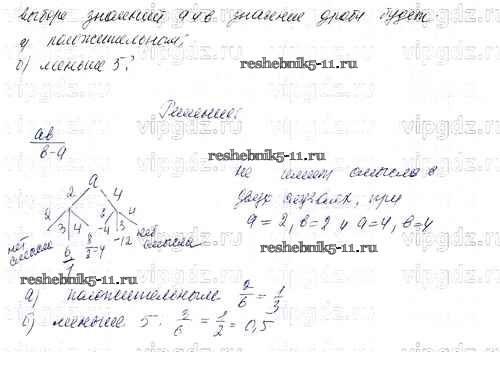 выборе значений a и b значение дроби будет
а) положительным;
б) меньше 5?
reshebnik5-11.ru
Решение:
ab
b-a
reshebnik5-11.ru
a
не имеет смысла в
2 4
двух случаях, при
2 3 4 3 4
a = 2, b = 2 и a = 4, b = 4
нет смысла 6/1 8/2=4 -12 нет смысла
reshebnik5-11.ru
reshebnik5-11.ru
а) положительным 2/6 = 1/3
б) меньше 5. 3/6 = 1/2 = 0,5
vipgdz.ru